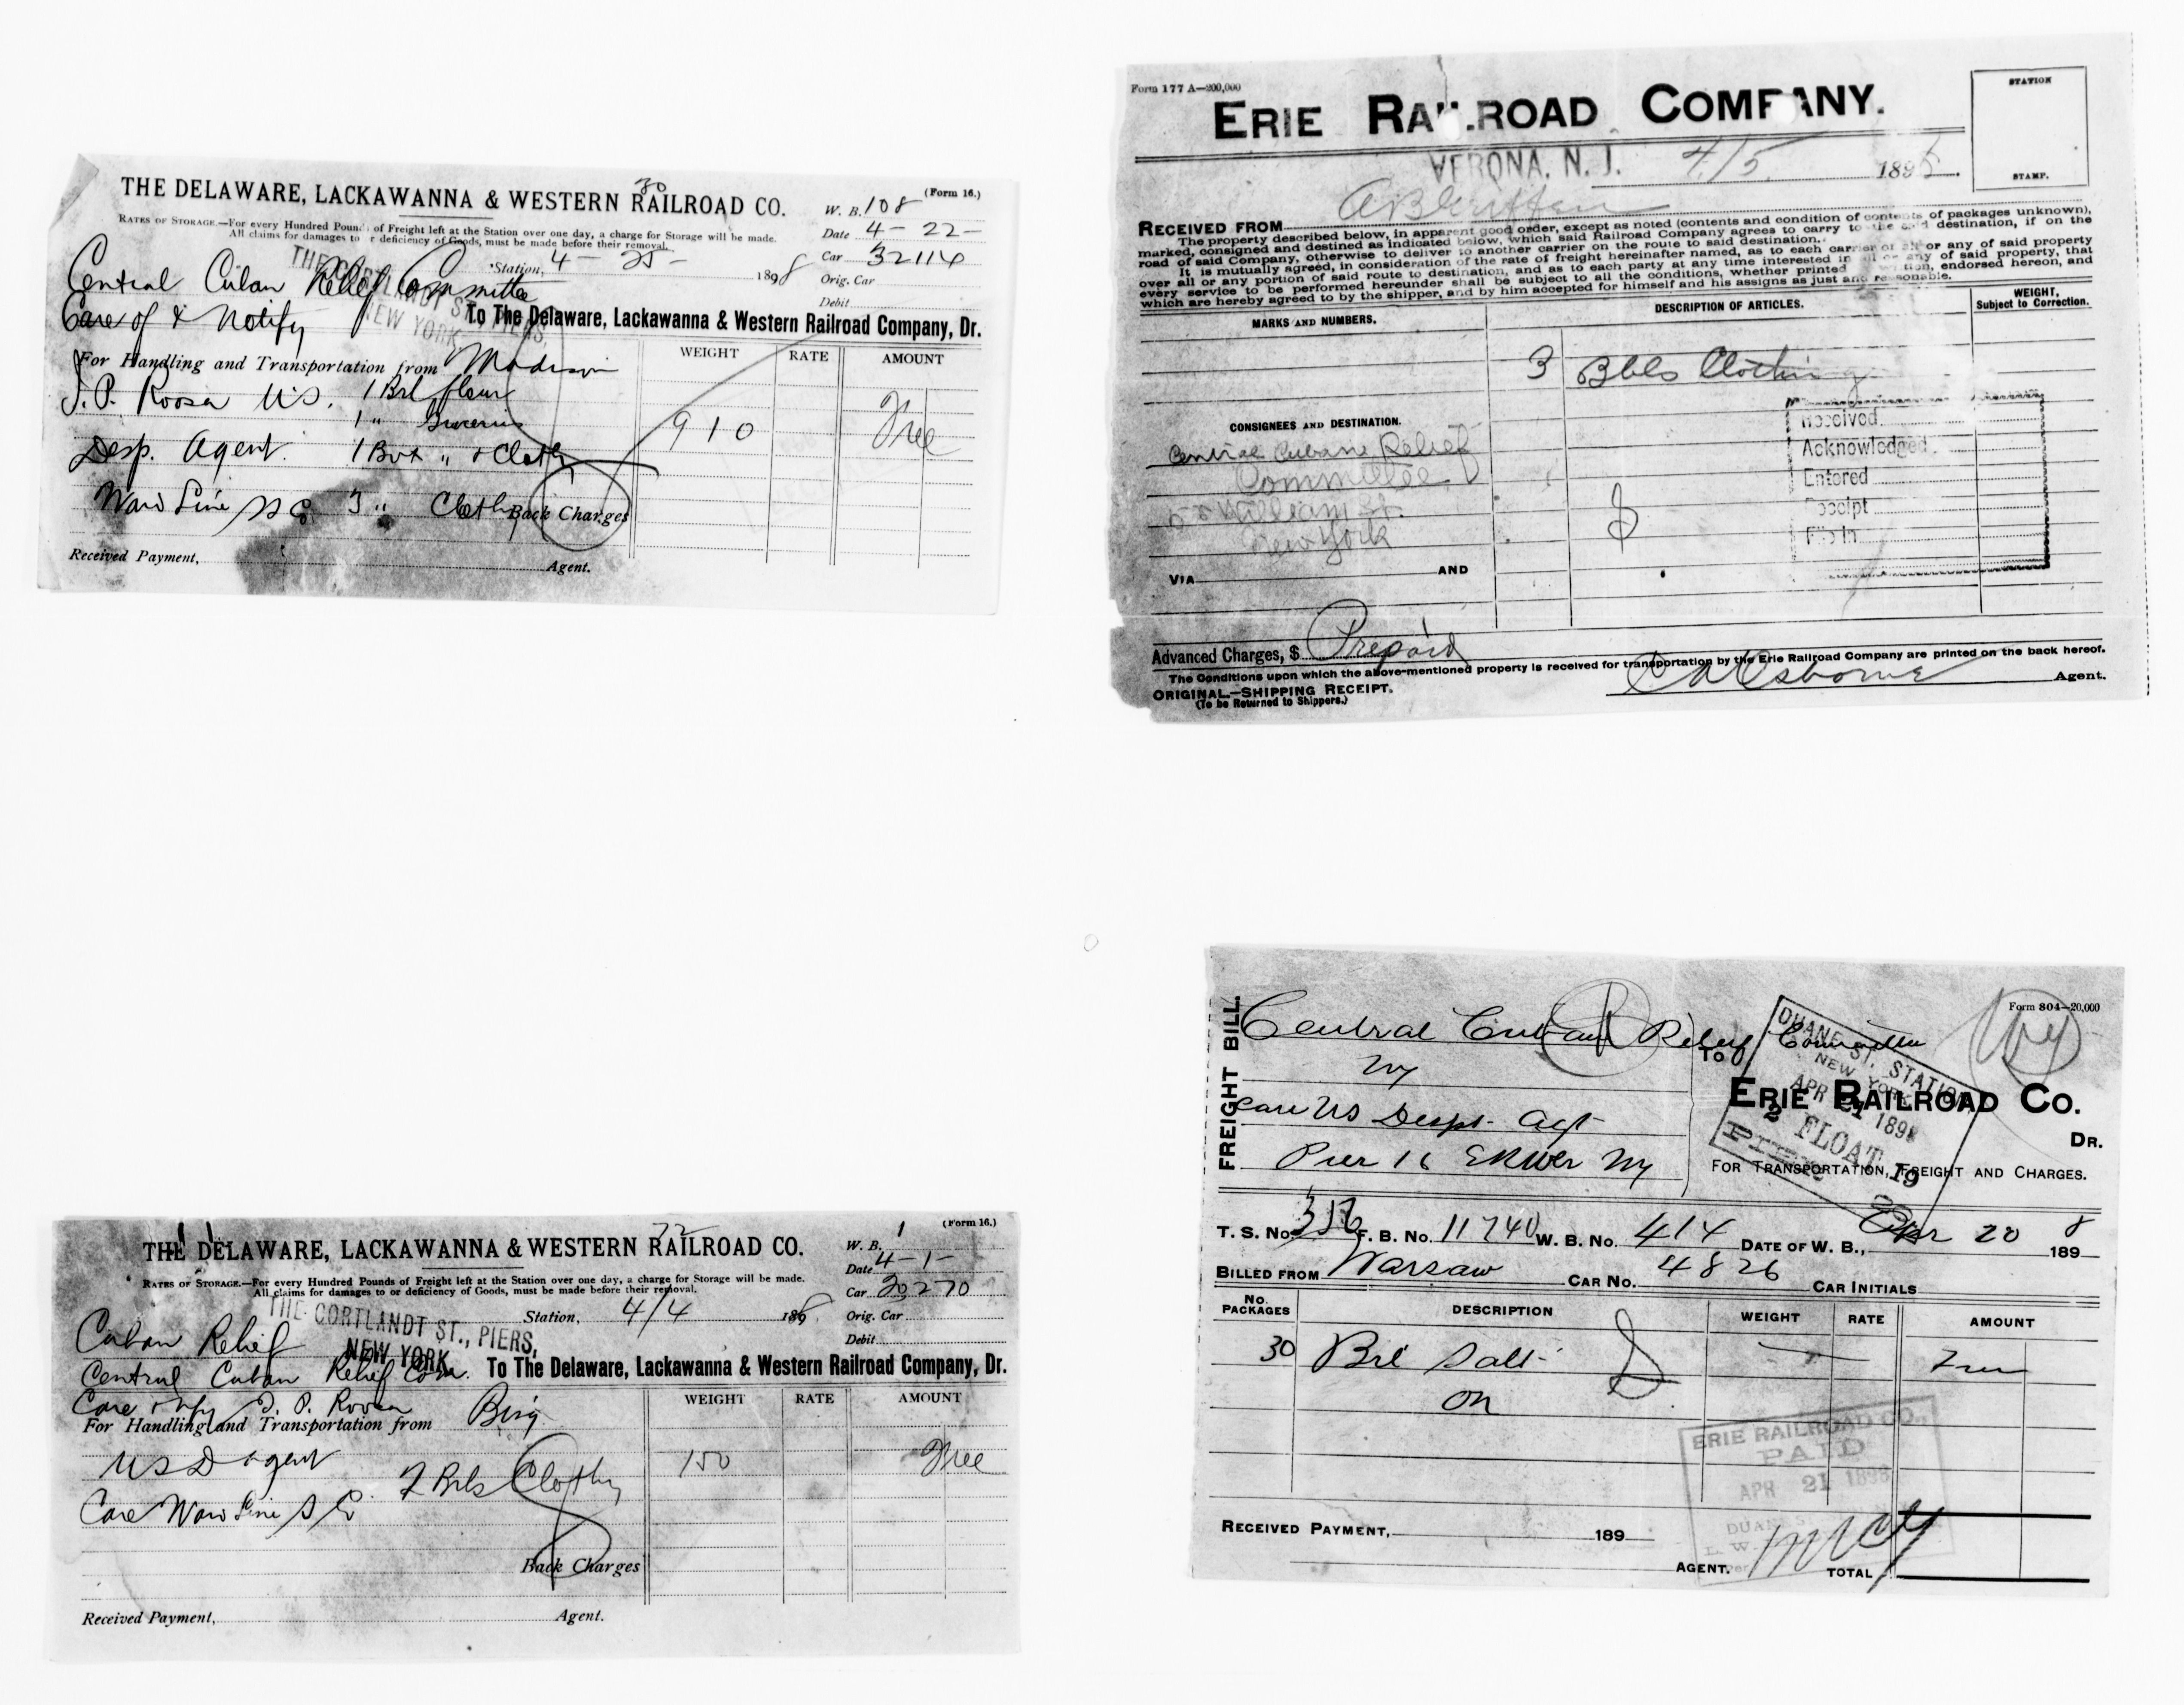 THE DELAWARE, LACKAWANNA & WESTERN RAILROAD CO.
30
(Form 16.)
W. B. 108
RATES OF STORAGE.—For every Hundred Pounds of Freight left at the Station over one day, a charge for Storage will be made.
All claims for damages to r deficiency of Goods, must be made before their removal.
Date 4-22-
Car 32114
THE CORTLANDT ST., PIERS,
NEW YORK
Station, 4-25- 1898
Orig. Car
Debit
Central Cuban Relief Committee
Care of & Notify
To The Delaware, Lackawanna & Western Railroad Company, Dr.
For Handling and Transportation from Madison
WEIGHT RATE AMOUNT
J. P. Roosa U.S. 1 Brl flour
1 " Groceries
Desp. Agent. 1 Box " & Clothg
910 Free
Ward Line SS 3 " Clothg
Back Charges
Received Payment, Agent.
Form 177 A—200,000
ERIE RAILROAD COMPANY.
STATION
STAMP.
VERONA, N. J. 4/5 189
RECEIVED FROM
The property described below, in apparent good order, except as noted (contents and condition of contents of packages unknown),
marked, consigned and destined as indicated below, which said Railroad Company agrees to carry to the said destination, if on the
road of said Company, otherwise to deliver to another carrier on the route to said destination.
It is mutually agreed, in consideration of the rate of freight hereinafter named, as to each carrier of all or any of said property
over all or any portion of said route to destination, and as to each party at any time interested in all or any of said property, that
every service to be performed hereunder shall be subject to all the conditions, whether printed or written, endorsed hereon, and
which are hereby agreed to by the shipper, and by him accepted for himself and his assigns as just and reasonable.
MARKS AND NUMBERS.
DESCRIPTION OF ARTICLES.
WEIGHT,
Subject to Correction.
3 Bbls Clothing
Received
Acknowledged
Entered
Receipt
File in
CONSIGNEES AND DESTINATION.
Central Cubane Relief
Committee
William St.
New York
VIA AND
Advanced Charges, $ Prepaid
The Conditions upon which the above-mentioned property is received for transportation by the Erie Railroad Company are printed on the back hereof.
ORIGINAL.—SHIPPING RECEIPT.
(To be Returned to Shippers.)
C A Osborne Agent.
THE DELAWARE, LACKAWANNA & WESTERN RAILROAD CO.
72
(Form 16.)
W. B. 1
Date 4-1-
RATES OF STORAGE.—For every Hundred Pounds of Freight left at the Station over one day, a charge for Storage will be made.
All claims for damages to or deficiency of Goods, must be made before their removal.
Car 20,270
THE CORTLANDT ST., PIERS,
NEW YORK
Station, 4/4 189
Orig. Car
Debit
Cuban Relief
Central Cuban Relief Com.
To The Delaware, Lackawanna & Western Railroad Company, Dr.
Care J. P. Roosa
For Handling and Transportation from Bing
WEIGHT RATE AMOUNT
U S D agent 2 Brls Clothg
150 Free
Care Ward Line SS
Back Charges
Received Payment, Agent.
FREIGHT BILL.
Form 804—20,000
Central Cuban Relief Committee
NY
Care US Despt. Agt
Pier 16 E River NY
TO
ERIE RAILROAD CO.
DR.
FOR TRANSPORTATION, FREIGHT AND CHARGES.
DUANE ST. STATION
NEW YORK
APR 21 1898
FLOAT
PIER 19
T. S. No. 316 F. B. No. 11740 W. B. No. 414 DATE OF W. B., Apr 20 1898
BILLED FROM Warsaw CAR No. 4826 CAR INITIALS
No. PACKAGES DESCRIPTION WEIGHT RATE AMOUNT
30 Brl Salt Free
ERIE RAILROAD CO.,
PAID
APR 21 1898
RECEIVED PAYMENT, 189
AGENT. TOTAL